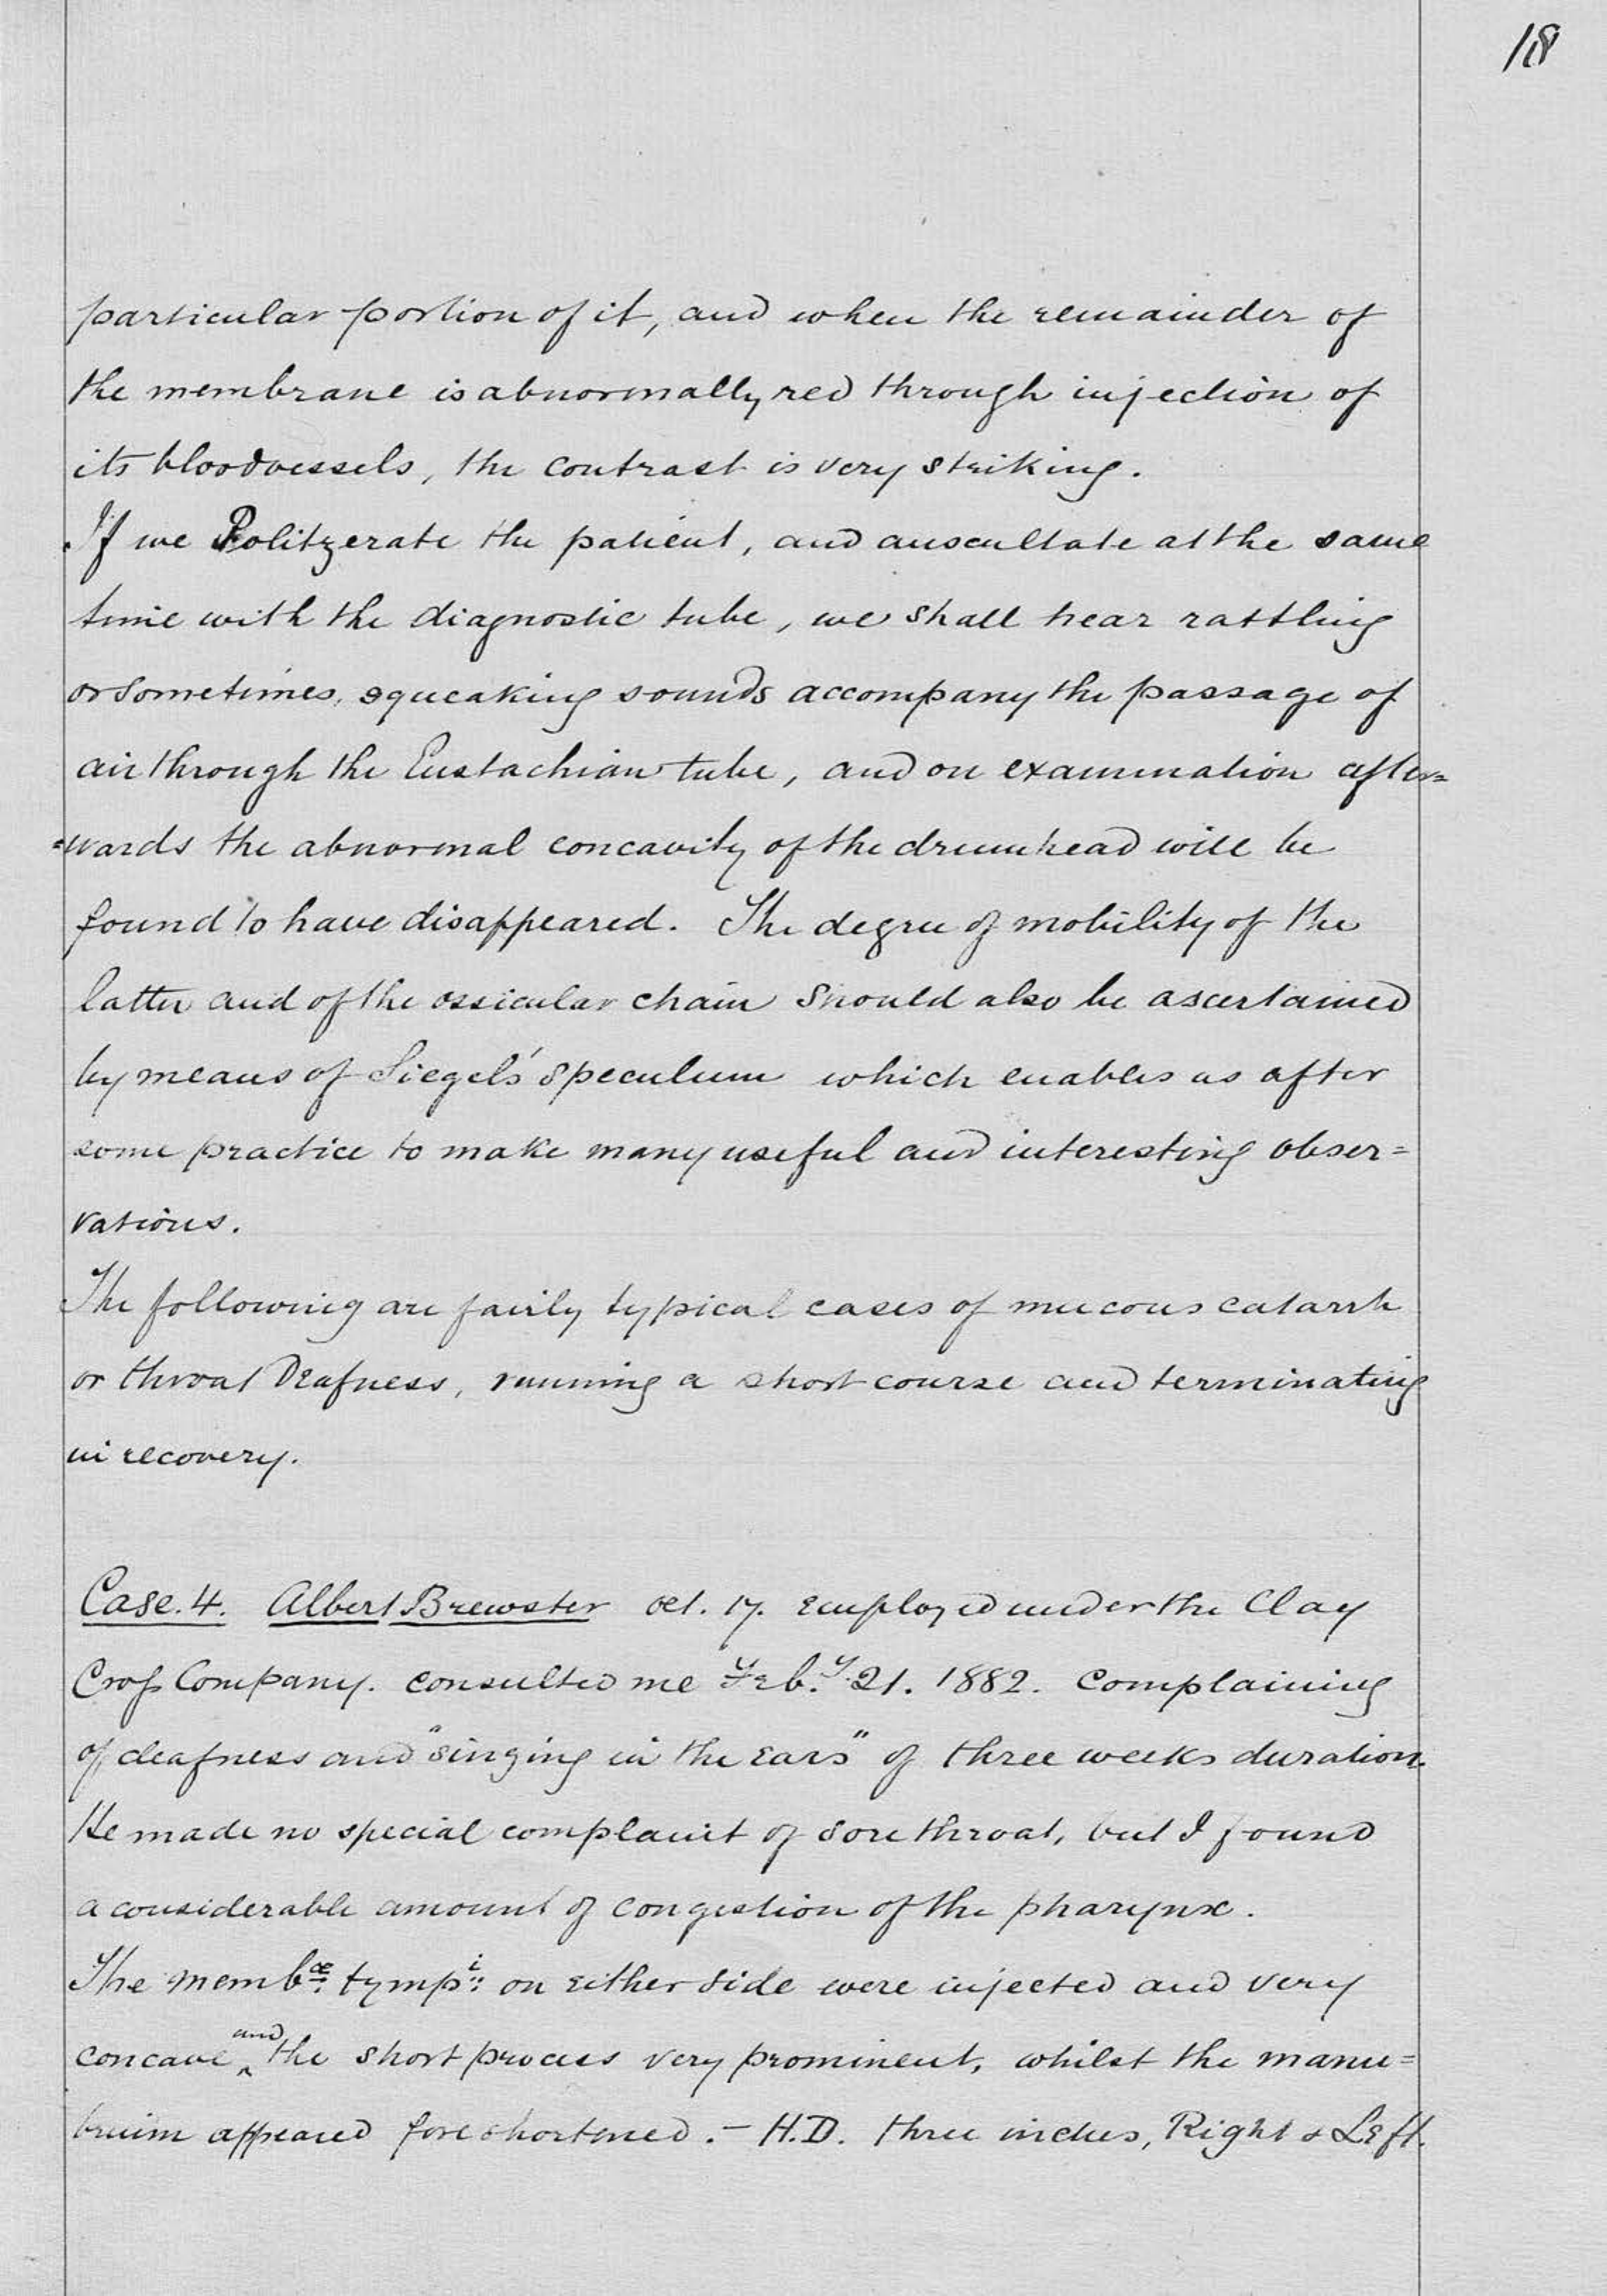 18
particular portion of it, and when the remainder of
the membrane is abnormally red through injection of
its bloodvessels, the contrast is very striking.
If we Politzerate the patient, and auscultate at the same
time with the diagnostic tube, we shall hear rattling
or sometimes, squeaking sounds accompany the passage of
air through the Eustachian tube, and on examination after=
=wards the abnormal concavity of the drumhead will be
found to have disappeared. The degree of mobility of the
latter and of the ossicular chain should also be ascertained
by means of Siegel's speculum which enables us after
some practice to make many useful and interesting obser=
vations.
The following are fairly typical cases of mucous catarrh
or throat Deafness, running a short course and terminating
in recovery.
Case. 4. Albert Brewster æt. 17. employed under the Clay
Cross Company. consulted me Feb.y 21. 1882. complaining
of deafness and "singing in the ears" of three weeks duration.
He made no special complaint of sore throat, but I found
a considerable amount of congestion of the pharynx.
The membæ tympi on either side were injected and very
concave and the short process very prominent, whilst the manu=
brium appeared foreshortened. – H.D. three inches, Right & Left.